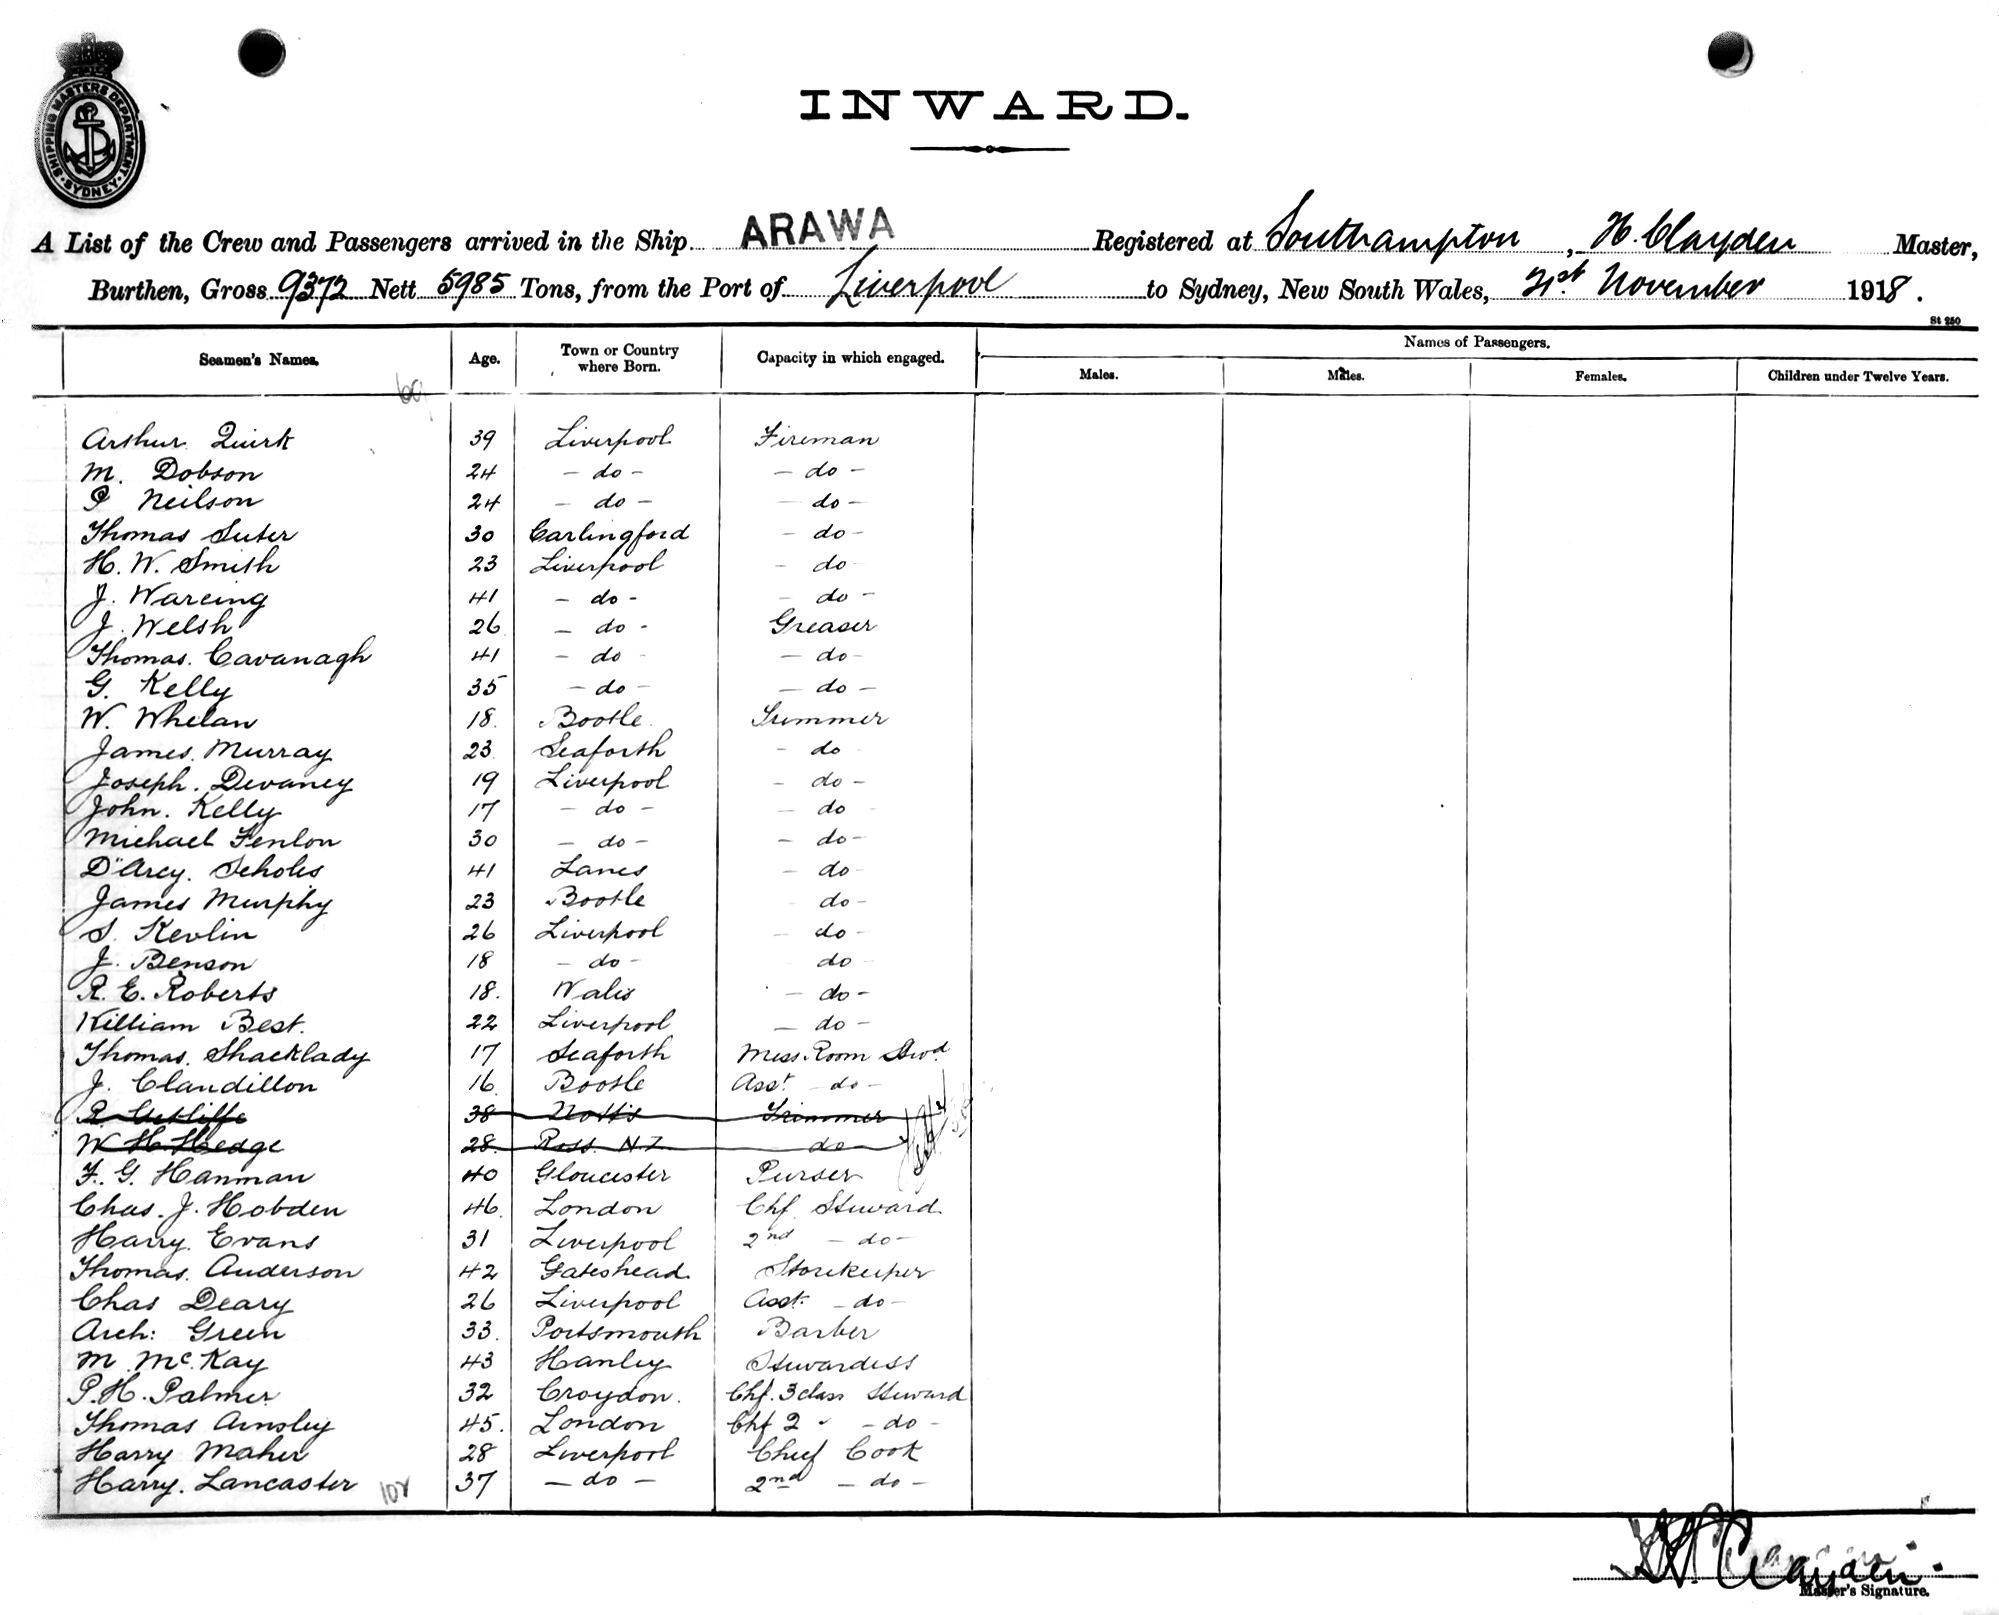 SHIPPING MASTERS DEPARTMENT
SYDNEY
INWARD.
A List of the Crew and Passengers arrived in the Ship ARAWA Registered at Southampton, H. Clayden Master,
Burthen, Gross 9372 Nett 5985 Tons, from the Port of Liverpool to Sydney, New South Wales, 21st November 1918.
St 250
Seamen's Names. Age. Town or Country where Born. Capacity in which engaged. Names of Passengers.
Males. Males. Females. Children under Twelve Years.
Arthur Quirk 39 Liverpool Fireman
M. Dobson 24 - do - - do -
P Neilson 24 - do - - do -
Thomas Suter 30 Carlingford - do -
H. W. Smith 23 Liverpool - do
J. Wareing 41 - do - - do -
J. Welsh 26 - do - Greaser
Thomas. Cavanagh 41 - do - - do -
G. Kelly 35 - do - - do -
W. Whelan 18. Bootle Trimmer
James. Murray 23 Seaforth - do
Joseph. Devaney 19 Liverpool - do -
John. Kelly 17 - do - - do
Michael Fenlon 30 - do - - do -
D'Arcy. Scholes 41 Lancs - do -
James Murphy 23 Bootle do -
S. Kevlin 26 Liverpool - do -
J. Benson 18 - do - do
R. E. Roberts 18. Wales - do -
William Best. 22 Liverpool - do -
Thomas. Shacklady 17 Seaforth Mess. Room Stwd
J. Clandillon 16 Bootle Asst. - do -
R. Sutcliffe 38 Notts Trimmer
W H. Hedge 28. Ross N.Z do
F. G. Hanman 40 Gloucester Purser
Chas. J. Hobden 46. London Chf. Steward
Harry. Evans 31 Liverpool 2nd - do -
Thomas. Anderson 42 Gateshead Storekeeper
Chas Deary 26 Liverpool Asst. - do -
Arch: Green 33. Portsmouth Barber
M McKay 43 Hanley Stewardess
P. H. Palmer 32 Croydon. Chf. 3 class Steward
Thomas Ainsley 45. London Chf 2 " - do -
Harry Maher 28 Liverpool Chief Cook
Harry. Lancaster 37 - do - 2nd - do -
102
H. Clayden
Master's Signature.